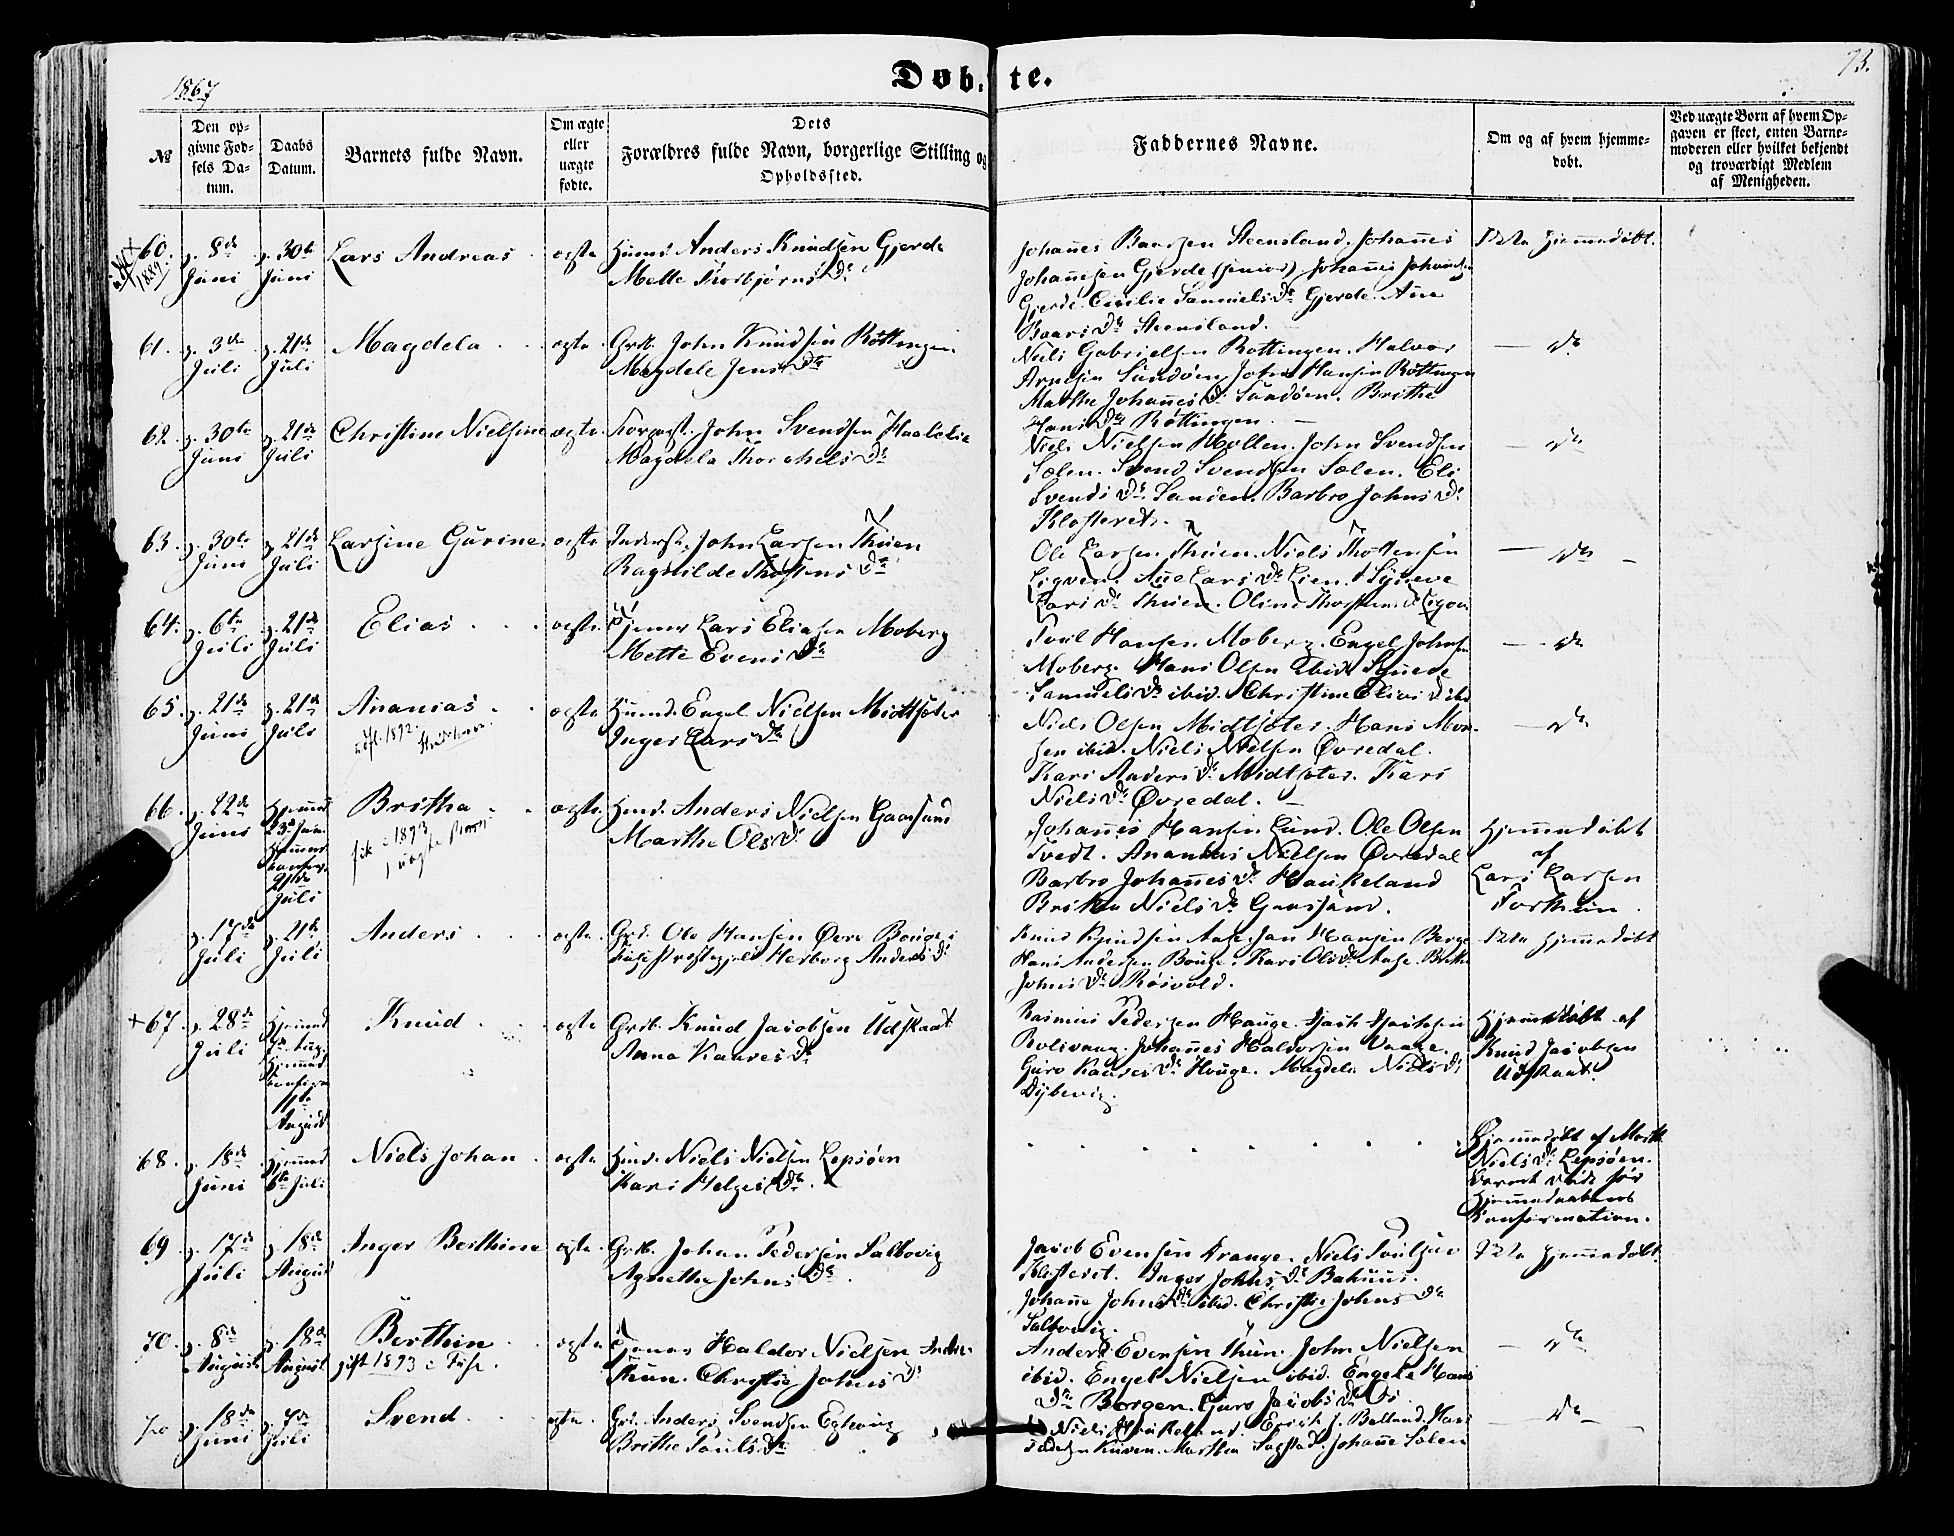 1867
Døbte.
73.
№
Den op-
givne Fød-
sels Da-
tum.
Daabs
Datum.
Barnets fulde Navn.
Om ægte
eller
uægte
fødte.
Dets
Forældres fulde Navn, borgerlige Stilling og
Opholdssted.
Faddernes Navne.
Om og af hvem hjemme-
døbt.
Ved uægte Børn af hvem Op-
gaven er skeet, enten Barne-
moderen eller hvilket bekjendt
og troværdigt Medlem
af Menigheden.
60. 8de Juni 30te Juni Lars Andreas ægte Huusmd. Anders Knudsen Gjerde
Mette Thorbjørns Dr
Johannes Baarsen Steensland. Johannes
Johannesen Gjerde (senior) Johannes Johannesen
Gjerde. Cecilie Samuels Dr Gjerde. Ane
Baars Dr Steensland.
Ikke hjemmedøbt.
1889
61. 3die Juli 21de Juli Magdela ægte Grdb. John Knudsen Røttingen
Magdele Jens Dtr
Niels Gabrielsen Røttingen. Halvor
Arnesen Sundøen. John Hansen Røttingen
Marthe Johannes D. Sundøen. Brithe
Hans Dr Røttingen.
Do
62. 30te Juni 21de Juli Christine Nielsine ægte John Svendsen
Magdela Thorchels Dr
Niels Nielsen Hollen. John Svendsen
Sælen. Svend Svendsen Sælen. Eli
Svends Dr Sanden. Barbro Johns Dr
Klosteret.
Do
63. 30te Juni 21de Juli Larsine Gurine ægte Inderst. John Larsen Thuen
Ragnilde Thostens Dr
Ole Larsen Thuen. Niels Thostensen
Ligven. Ane Lars Dr Lien. Synneve
Lars Dr Thuen. Oline Thostens D. Ligven
Do
64. 6te Juli 21de Juli Elias ægte Tjener Lars Eliasen Moberg
Mette Evens Dr
Poul Hansen Moberg. Engel Johns.
Moberg. Hans Olsen ibid. Synneve
Samuels Dr ibid. Christine Elias D. ibd
Do
65. 21de Juni 21de Juli Ananias ægte Huusmd. Engel Nielsen Midtsæter
Inger Lars Dr
1892
Niels Olsen Midtsæter. Hans Mon-
sen ibid. Niels Nielsen Øvredal.
Kari Anders Dr Midtsæter. Kari
Niels Dr Øvredal.
Do
66. 22de Juni Hjemmed. 23d Juni 21de Juli Britha ægte Huusmd. Anders Nielsen Gaassand
Marthe Ols Dr
fik i 1893
1 uægte Barn
Johannes Hansen Lund. Ole Olsen
Tvedt. Ananias Nielsen Øvredal
Barbro Johannes Dr Haukeland
Britha Niels Dr Gaassand.
Hjemmedøbt
af
Lars Larsen
17de Juli 21de Juli Anders ægte Grd. Ole Hansen Øvre Bouge i
Fuse Præstegjeld Herborg Anders Dr
Knud Knudsen Aase. Jan Hansen Berge
Hans Andersen Bouge. Kari Ols Dr Aase. Brithe
Johns Dr Røivold.
Ikke hjemmedøbt
67. 28de Juli Knud ægte Grdb. Knud Jacobsen Udskaat
Anna Kaares Dr
August
Rasmus Pedersen Hauge.
Johannes Haldorsen Vaage.
Guro Kaares Dr Houge. Magdele Niels Dr
Dybevig.
Hjemmedøbt af
Knud Jacobsen
Udskaat.
68. 18de Juni Hjemmd 6te Juli Niels Johan ægte Huusmd. Niels Nielsen Lepsøen
Kari Helges Dr
Hjemmedøbt af Marth.
Niels Dr Lepsøen.
Barnet døde før
Hjemmedaabens
Konfirmation.
69. 17de Juli 18de August Inger Berthine ægte Grdb. Johan Pedersen Salbovig
Agnethe Johns Dr
Jacob Evensen Drange. Niels Poulsen
Klosteret. Inger Johns Dr Bahuus.
Johanne Johns Dr ibid. Christie Johns Dr
Salbovig.
Ikke hjemmedøbt.
70. 8de August 18de August Berthin ægte Tjener Haldor Nielsen Indre
Thuen. Christie Johns Dr
gift 1893 i Fuse.
Anders Evensen Thuen. John Nielsen
ibid. Engel Nielsen ibid. Engele Hans
Dr Borgen. Guro Jacobs Dr Os
Do
70 18de Juni 7de Juli Svend ægte Grd. Anders Svendsen
Brithe Pouls Dr
Niels Haukeland. Erich J. Balland. Hans
Marthea Søfstad. Johanne Sælen
Do